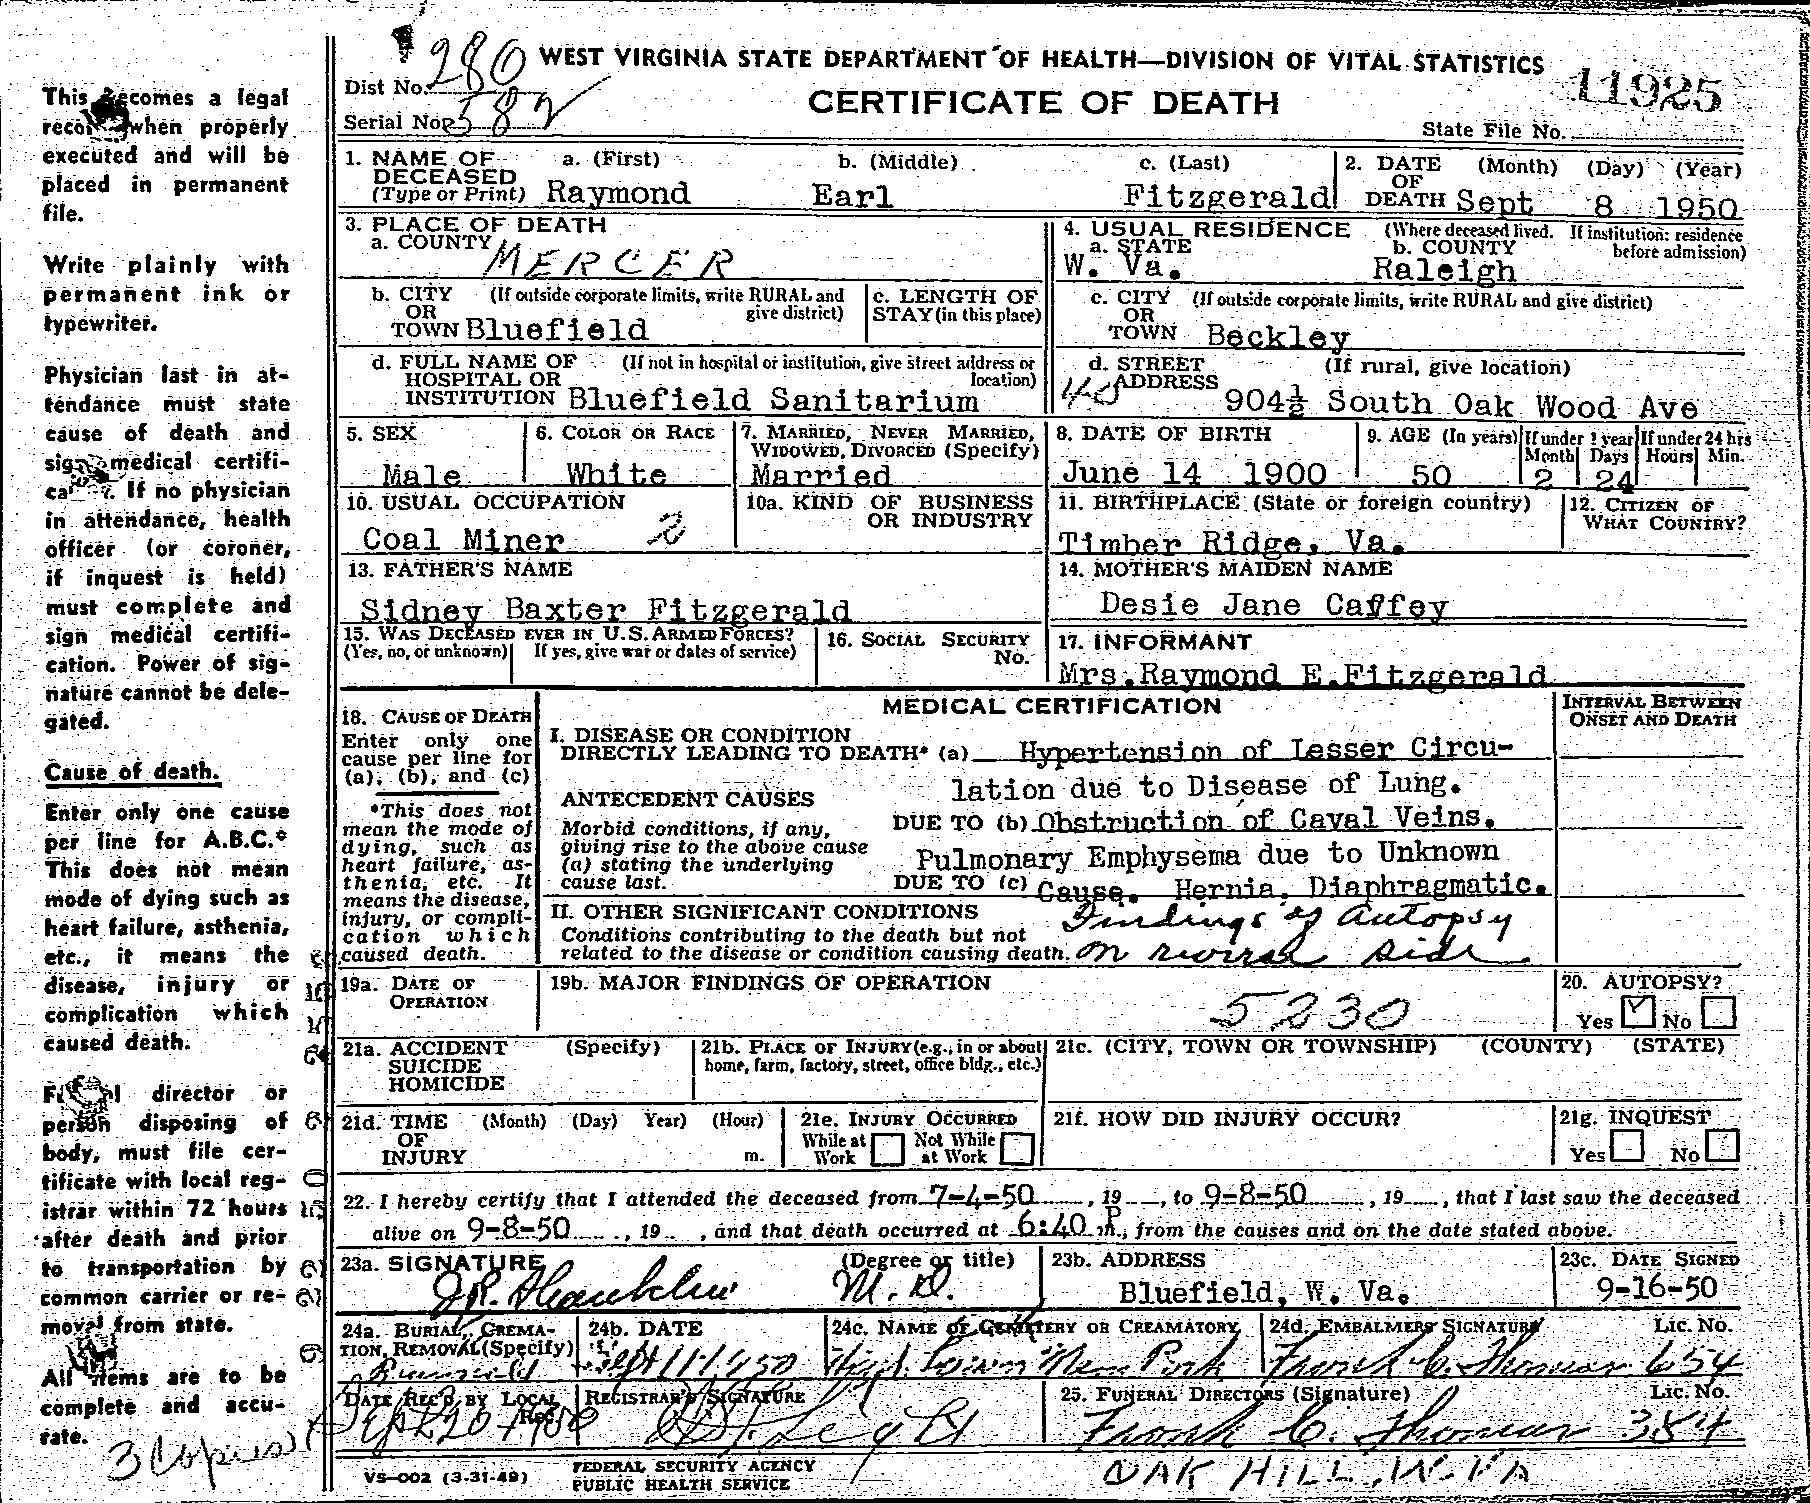 280 WEST VIRGINIA STATE DEPARTMENT OF HEALTH—DIVISION OF VITAL STATISTICS
Dist No.
582
Serial No.
CERTIFICATE OF DEATH
11925
State File No.
This becomes a legal
record when properly
executed and will be
placed in permanent
file.
Write plainly with
permanent ink or
typewriter.
Physician last in at-
tendance must state
cause of death and
sign medical certifi-
cate. If no physician
in attendance, health
officer (or coroner,
if inquest is held)
must complete and
sign medical certifi-
cation. Power of sig-
nature cannot be dele-
gated.
Cause of death.
Enter only one cause
per line for A.B.C.*
This does not mean
mode of dying such as
heart failure, asthenia,
etc., it means the
disease, injury or
complication which
caused death.
Funeral director or
person disposing of
body, must file cer-
tificate with local reg-
istrar within 72 hours
after death and prior
to transportation by
common carrier or re-
moval from state.
All items are to be
complete and accu-
rate.
3 Copies
1. NAME OF DECEASED (Type or Print) a. (First) b. (Middle) c. (Last)
Raymond Earl Fitzgerald
2. DATE OF DEATH (Month) (Day) (Year)
Sept 8 1950
3. PLACE OF DEATH
a. COUNTY MERCER
4. USUAL RESIDENCE (Where deceased lived. If institution: residence before admission)
a. STATE W. Va. b. COUNTY Raleigh
b. CITY OR TOWN (If outside corporate limits, write RURAL and give district)
Bluefield
c. LENGTH OF STAY (in this place)
c. CITY OR TOWN (If outside corporate limits, write RURAL and give district)
Beckley
d. FULL NAME OF HOSPITAL OR INSTITUTION (If not in hospital or institution, give street address or location)
Bluefield Sanitarium
d. STREET ADDRESS (If rural, give location)
904½ South Oak Wood Ave
5. SEX
Male
6. COLOR OR RACE
White
7. MARRIED, NEVER MARRIED, WIDOWED, DIVORCED (Specify)
Married
8. DATE OF BIRTH
June 14 1900
9. AGE (In years) If under 1 year Month Days If under 24 hrs Hours Min.
50 2 24
10. USUAL OCCUPATION
Coal Miner 2
10a. KIND OF BUSINESS OR INDUSTRY
11. BIRTHPLACE (State or foreign country)
Timber Ridge, Va.
12. CITIZEN OF WHAT COUNTRY?
13. FATHER'S NAME
Sidney Baxter Fitzgerald
14. MOTHER'S MAIDEN NAME
Desie Jane Caffey
15. WAS DECEASED EVER IN U.S. ARMED FORCES?
(Yes, no, or unknown) If yes, give war or dates of service)
16. SOCIAL SECURITY No.
17. INFORMANT
Mrs.Raymond E.Fitzgerald
MEDICAL CERTIFICATION
INTERVAL BETWEEN ONSET AND DEATH
18. CAUSE OF DEATH
Enter only one
cause per line for
(a), (b), and (c)
*This does not
mean the mode of
dying, such as
heart failure, as-
thenia, etc. It
means the disease,
injury, or compli-
cation which
caused death.
I. DISEASE OR CONDITION
DIRECTLY LEADING TO DEATH* (a) Hypertension of Lesser Circu-
lation due to Disease of Lung.
ANTECEDENT CAUSES
Morbid conditions, if any,
giving rise to the above cause
(a) stating the underlying
cause last.
DUE TO (b) Obstruction of Caval Veins.
Pulmonary Emphysema due to Unknown
DUE TO (c) Cause. Hernia, Diaphragmatic.
II. OTHER SIGNIFICANT CONDITIONS
Conditions contributing to the death but not
related to the disease or condition causing death.
Findings of Autopsy
on reverse side.
19a. DATE OF OPERATION
19b. MAJOR FINDINGS OF OPERATION
5230
20. AUTOPSY?
Yes No
21a. ACCIDENT SUICIDE HOMICIDE (Specify)
21b. PLACE OF INJURY (e.g., in or about home, farm, factory, street, office bldg., etc.)
21c. (CITY, TOWN OR TOWNSHIP) (COUNTY) (STATE)
21d. TIME OF INJURY (Month) (Day) Year) (Hour) m.
21e. INJURY OCCURRED
While at Work Not While at Work
21f. HOW DID INJURY OCCUR?
21g. INQUEST
Yes No
22. I hereby certify that I attended the deceased from 7-4-50, 19, to 9-8-50, 19, that I last saw the deceased
alive on 9-8-50, 19, and that death occurred at 6:40 P m., from the causes and on the date stated above.
23a. SIGNATURE (Degree or title)
M. D.
23b. ADDRESS
Bluefield, W. Va.
23c. DATE SIGNED
9-16-50
24a. BURIAL, CREMATION, REMOVAL (Specify)
24b. DATE
Sept 11 1950
24c. NAME OF CEMETERY OR CREAMATORY
Mem Park
24d. EMBALMERS SIGNATURE Lic. No.
Frank C. Thomas 654
DATE REC'D BY LOCAL REG.
Sept 20 1950
REGISTRAR'S SIGNATURE
25. FUNERAL DIRECTORS (Signature) Lic. No.
Frank C. Thomas 384
OAK HILL, W. VA
VS-002 (3-31-49)
FEDERAL SECURITY AGENCY
PUBLIC HEALTH SERVICE